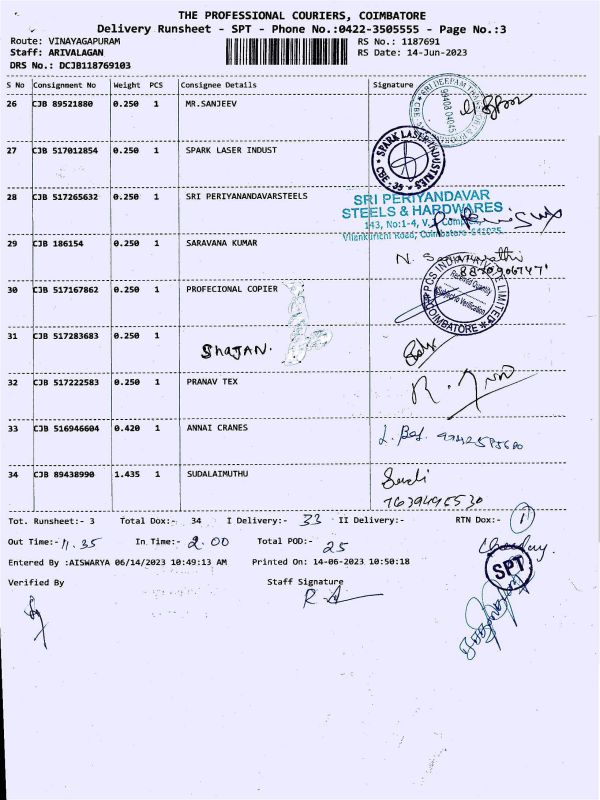 THE PROFESSIONAL COURIERS, COIMBATORE
Delivery Runsheet - SPT - Phone No.:0422-3505555 - Page No.:3
Route: VINAYAGAPURAM RS No.: 1187691
Staff: ARIVALAGAN RS Date: 14-Jun-2023
DRS No.: DCJB118769103
S No Consignment No Weight PCS Consignee Details Signature
26 CJB 89521880 0.250 1 MR.SANJEEV
SRI DEEPAM
99408 04045
27 CJB 517012854 0.250 1 SPARK LASER INDUST
SPARK LASER INDUSTRIES
CBE - 35
28 CJB 517265632 0.250 1 SRI PERIYANANDAVARSTEELS
SRI PERIYANDAVAR
STEELS & HARDWARES
143, No:1-4, V.
Vilankurichi Road, Coimbatore-641035
29 CJB 186154 0.250 1 SARAVANA KUMAR
30 CJB 517167862 0.250 1 PROFECIONAL COPIER
LIMITED
COIMBATORE
31 CJB 517283683 0.250 1
SHAJAN.
32 CJB 517222583 0.250 1 PRANAV TEX
33 CJB 516946604 0.420 1 ANNAI CRANES
34 CJB 89438990 1.435 1 SUDALAIMUTHU
Tot. Runsheet:- 3 Total Dox:- 34 I Delivery:- 33 II Delivery:- RTN Dox:- 1
Out Time:- 11.35 In Time:- 2.00 Total POD:- 25
Entered By :AISWARYA 06/14/2023 10:49:13 AM Printed On: 14-06-2023 10:50:18
SPT
Verified By Staff Signature